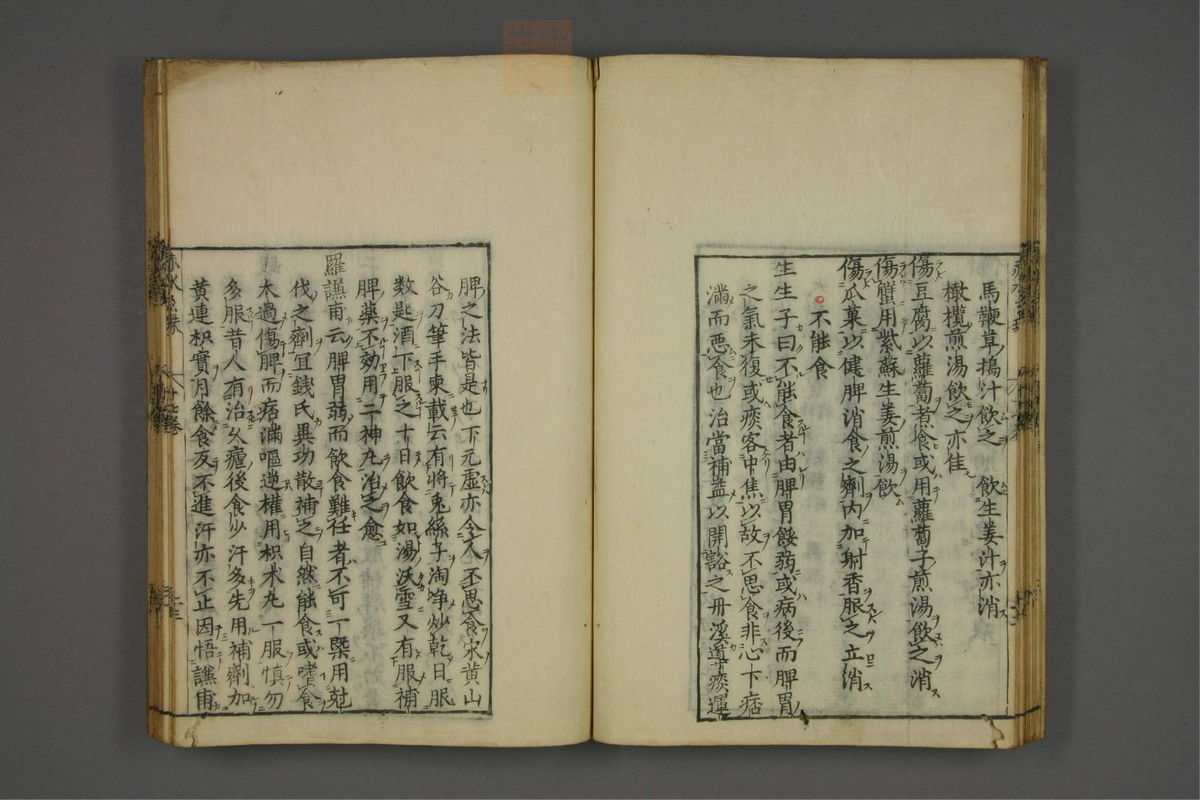 馬鞭草搗汁飲之　飲生姜汁亦消
橄欖煎湯飲之亦佳
傷豆腐以蘿蔔煮食或用蘿蔔子煎湯飲之消
傷蟹用紫蘇生姜煎湯飲
傷瓜菓以健脾消食之劑内加射香服之立消
不能食
生生子曰不能食者由脾胃餒弱或病後而脾胃
之氣未復或痰客中焦以故不思食非心下痞
滿而惡食也治當補益以開豁之丹溪導痰運
脾之法皆是也下元虛亦令人不思食宋黄山
谷刀筆手柬載云有將兎絲子淘净炒乾日服
数匙酒下服之十日飲食如湯沃雪又有服補
脾薬不効用二神丸治之愈
羅謙甫云脾胃弱而飲食難任者不可一槩用尅
伐之劑宜錢氏異功散補之自然能食或嗜食
太過傷脾而痞滿嘔逆權用枳术丸一服慎勿
多服昔人有治久瘧後食少汗多先用補劑加
黄連枳實月餘食反不進汗亦不止因悟謙甫